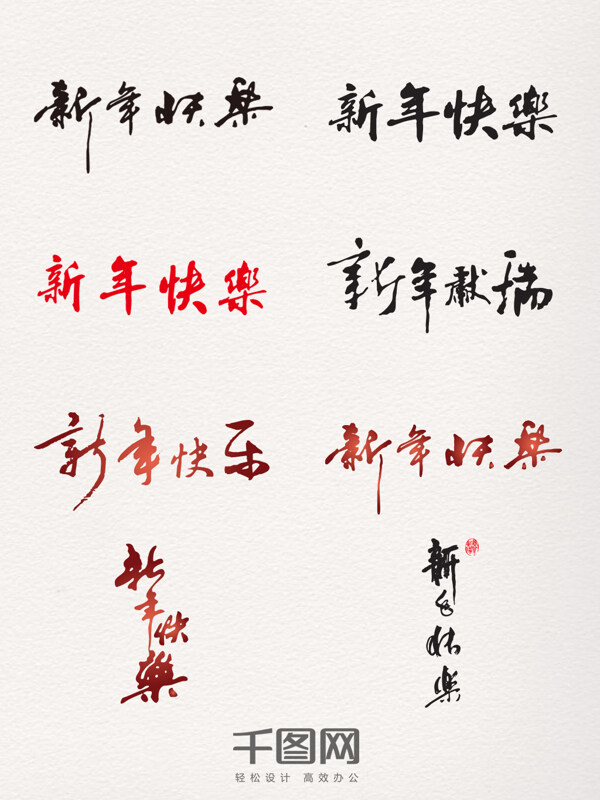 新年快樂
新年快樂
新年快樂
新年献瑞
新年快乐
新年快樂
新年快樂
新年快樂
千图网
轻松设计 高效办公